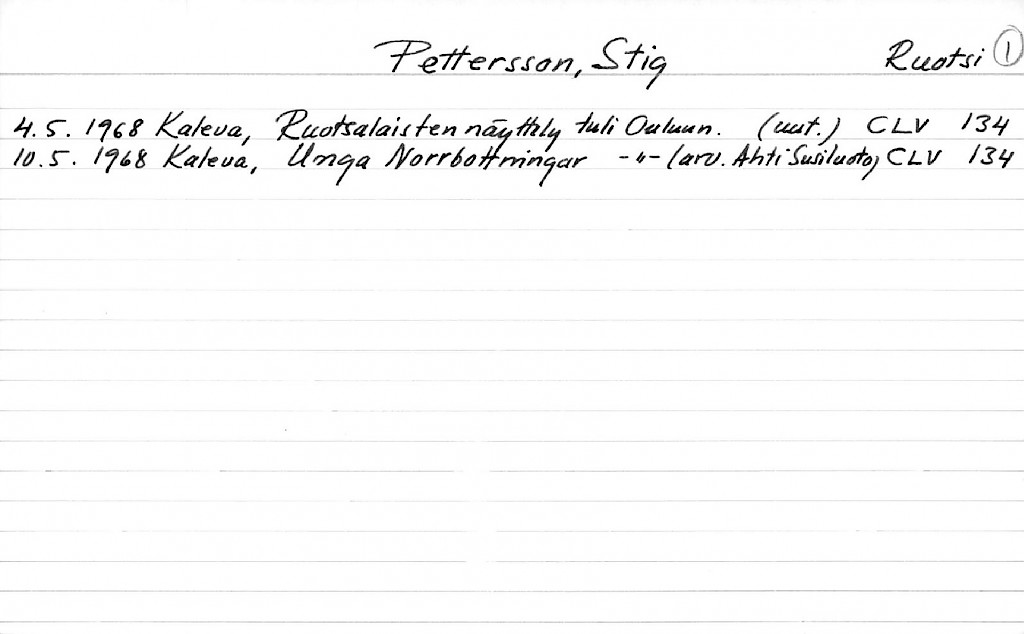 Pettersson, Stig Ruotsi 1
4.5. 1968 Kaleva, Ruotsalaisten näyttely tuli Ouluun. (uut.) CLV 134
10.5. 1968 Kaleva, Unga Norrbottningar -"- (arv. Ahti Susiluoto) CLV 134